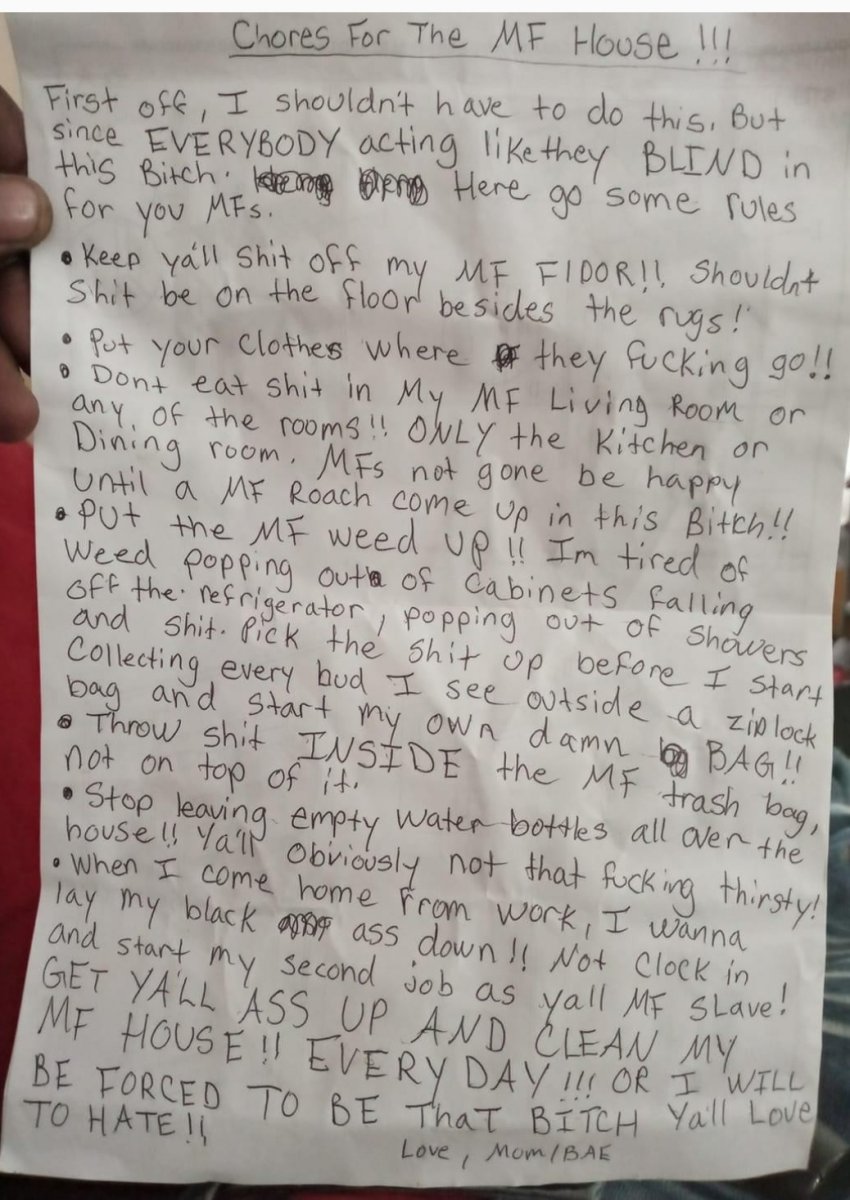 Chores For The MF House !!!
First off, I shouldn't have to do this. But
since EVERYBODY acting like they BLIND in
this Bitch. Here go some rules
for you MFs.
• Keep ya'll shit off my MF FlOOR!! Shouldnt
Shit be on the floor besides the rugs!
• Put your clothes where they fucking go!!
• Dont eat shit in My MF Living Room or
any of the rooms!! ONLY the Kitchen or
Dining room. MFs not gone be happy
until a MF Roach come up in this Bitch!!
• PUT the MF weed UP!! Im tired of
Weed popping out of cabinets falling
off the refrigerator, popping out of showers
and shit. Pick the shit up before I start
Collecting every bud I see outside a ziplock
bag and start my own damn BAG!!
• Throw shit INSIDE the MF trash bag,
not on top of it.
• Stop leaving empty water bottles all over the
house!! Ya'll obviously not that fucking thirsty!
• When I come home from work, I wanna
lay my black ass down!! Not Clock in
and start my second job as yall MF Slave!
GET YA'LL ASS UP AND CLEAN MY
MF HOUSE!! EVERYDAY!!! OR I WILL
BE FORCED TO BE ThaT BITCH Ya'll Love
TO HATE!!
Love, Mom/BAE